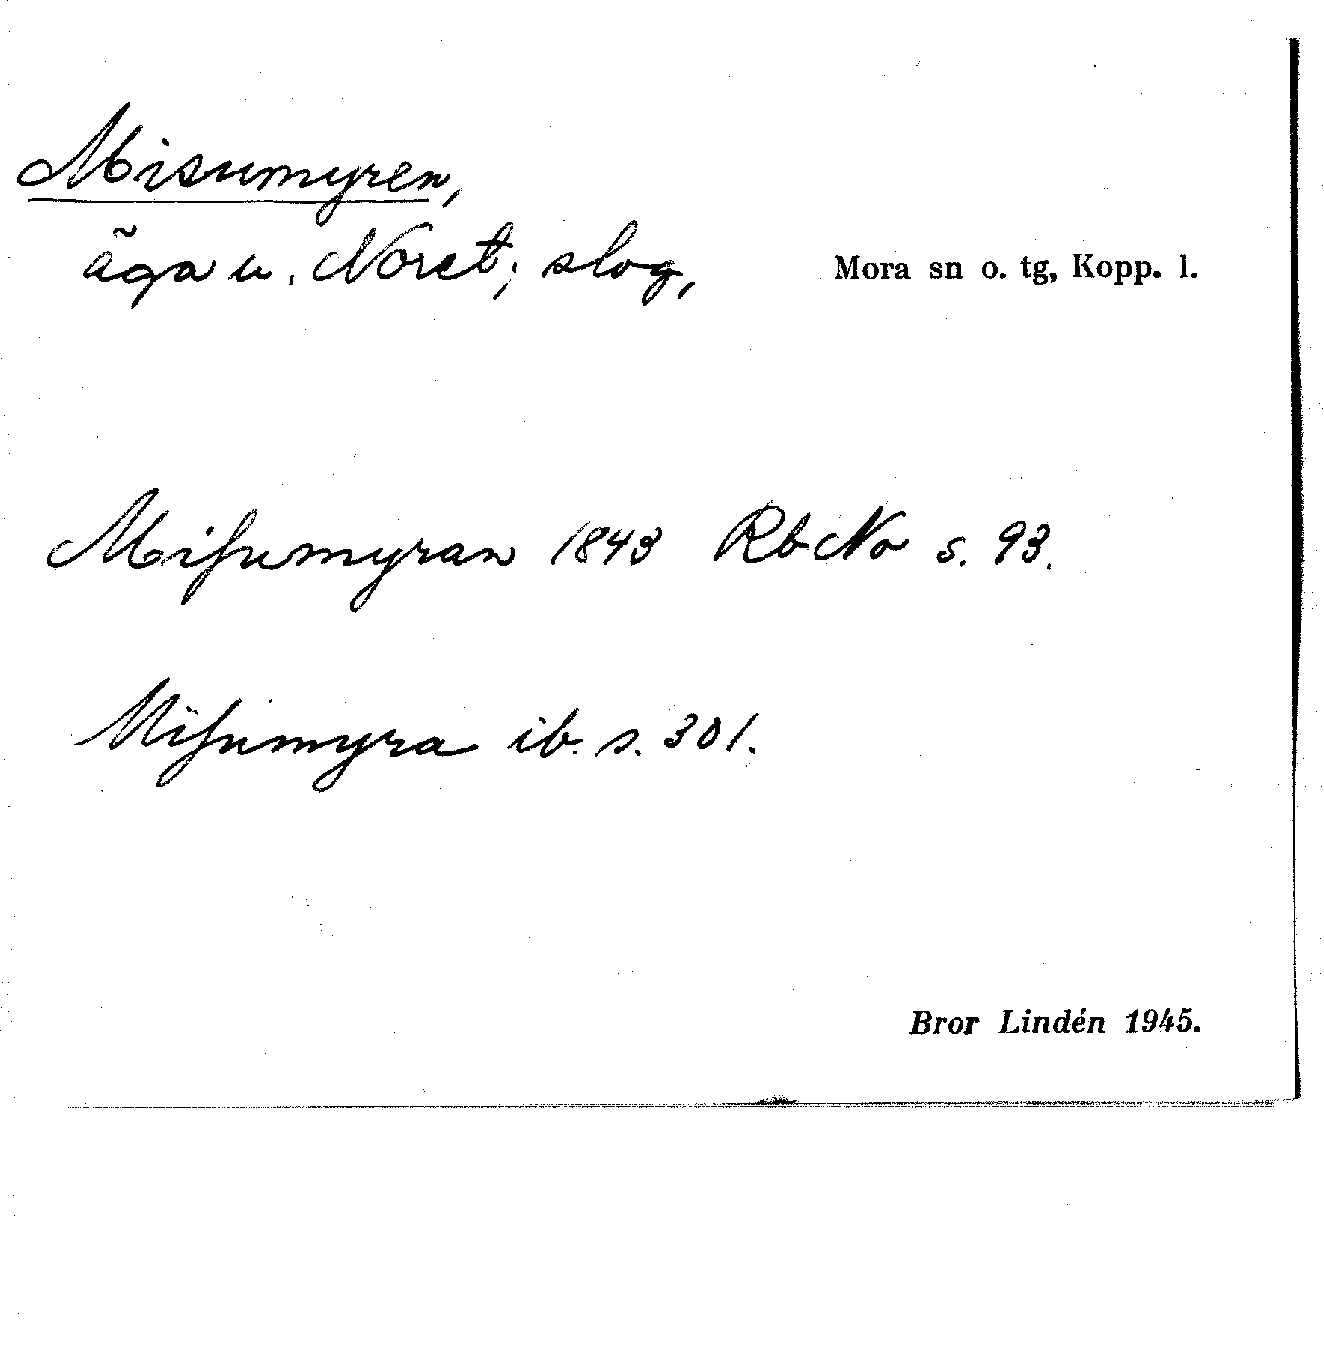 Misumyren,
äga u. Noret; slog,
Mora sn o. tg, Kopp. l.
Miſumyran 1843 RbNo s. 93.
Miſumyra ib. s. 301.
Bror Lindén 1945.